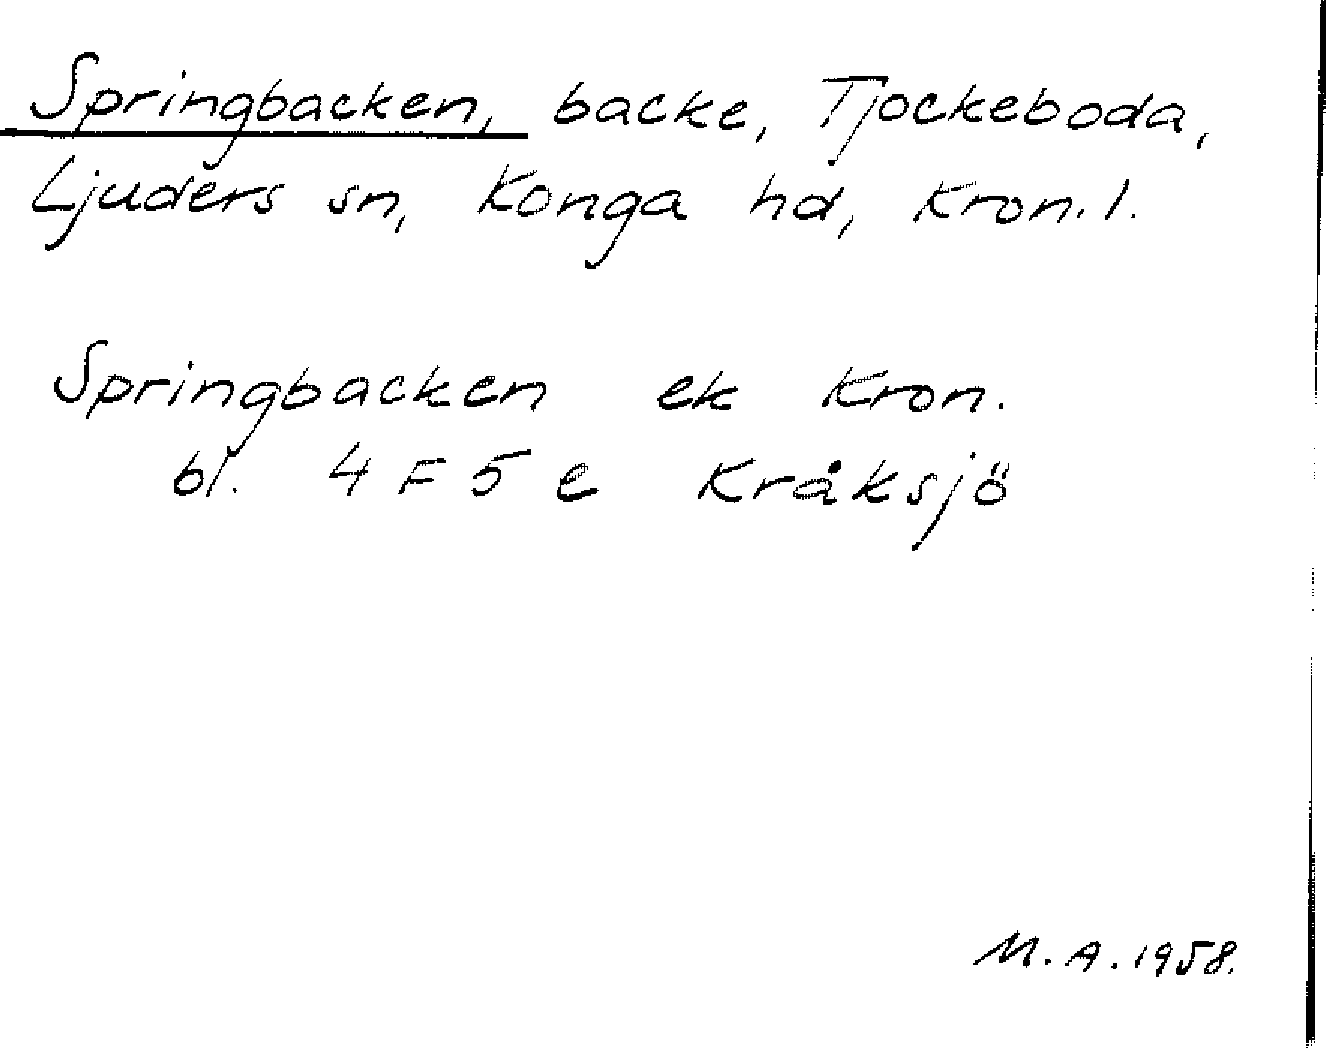 Springbacken, backe, Tjockeboda,
Ljuders sn, Konga hd, Kron. l.
Springbacken ek Kron.
bl. 4 F 5 e Kråksjö
M. A. 1958.